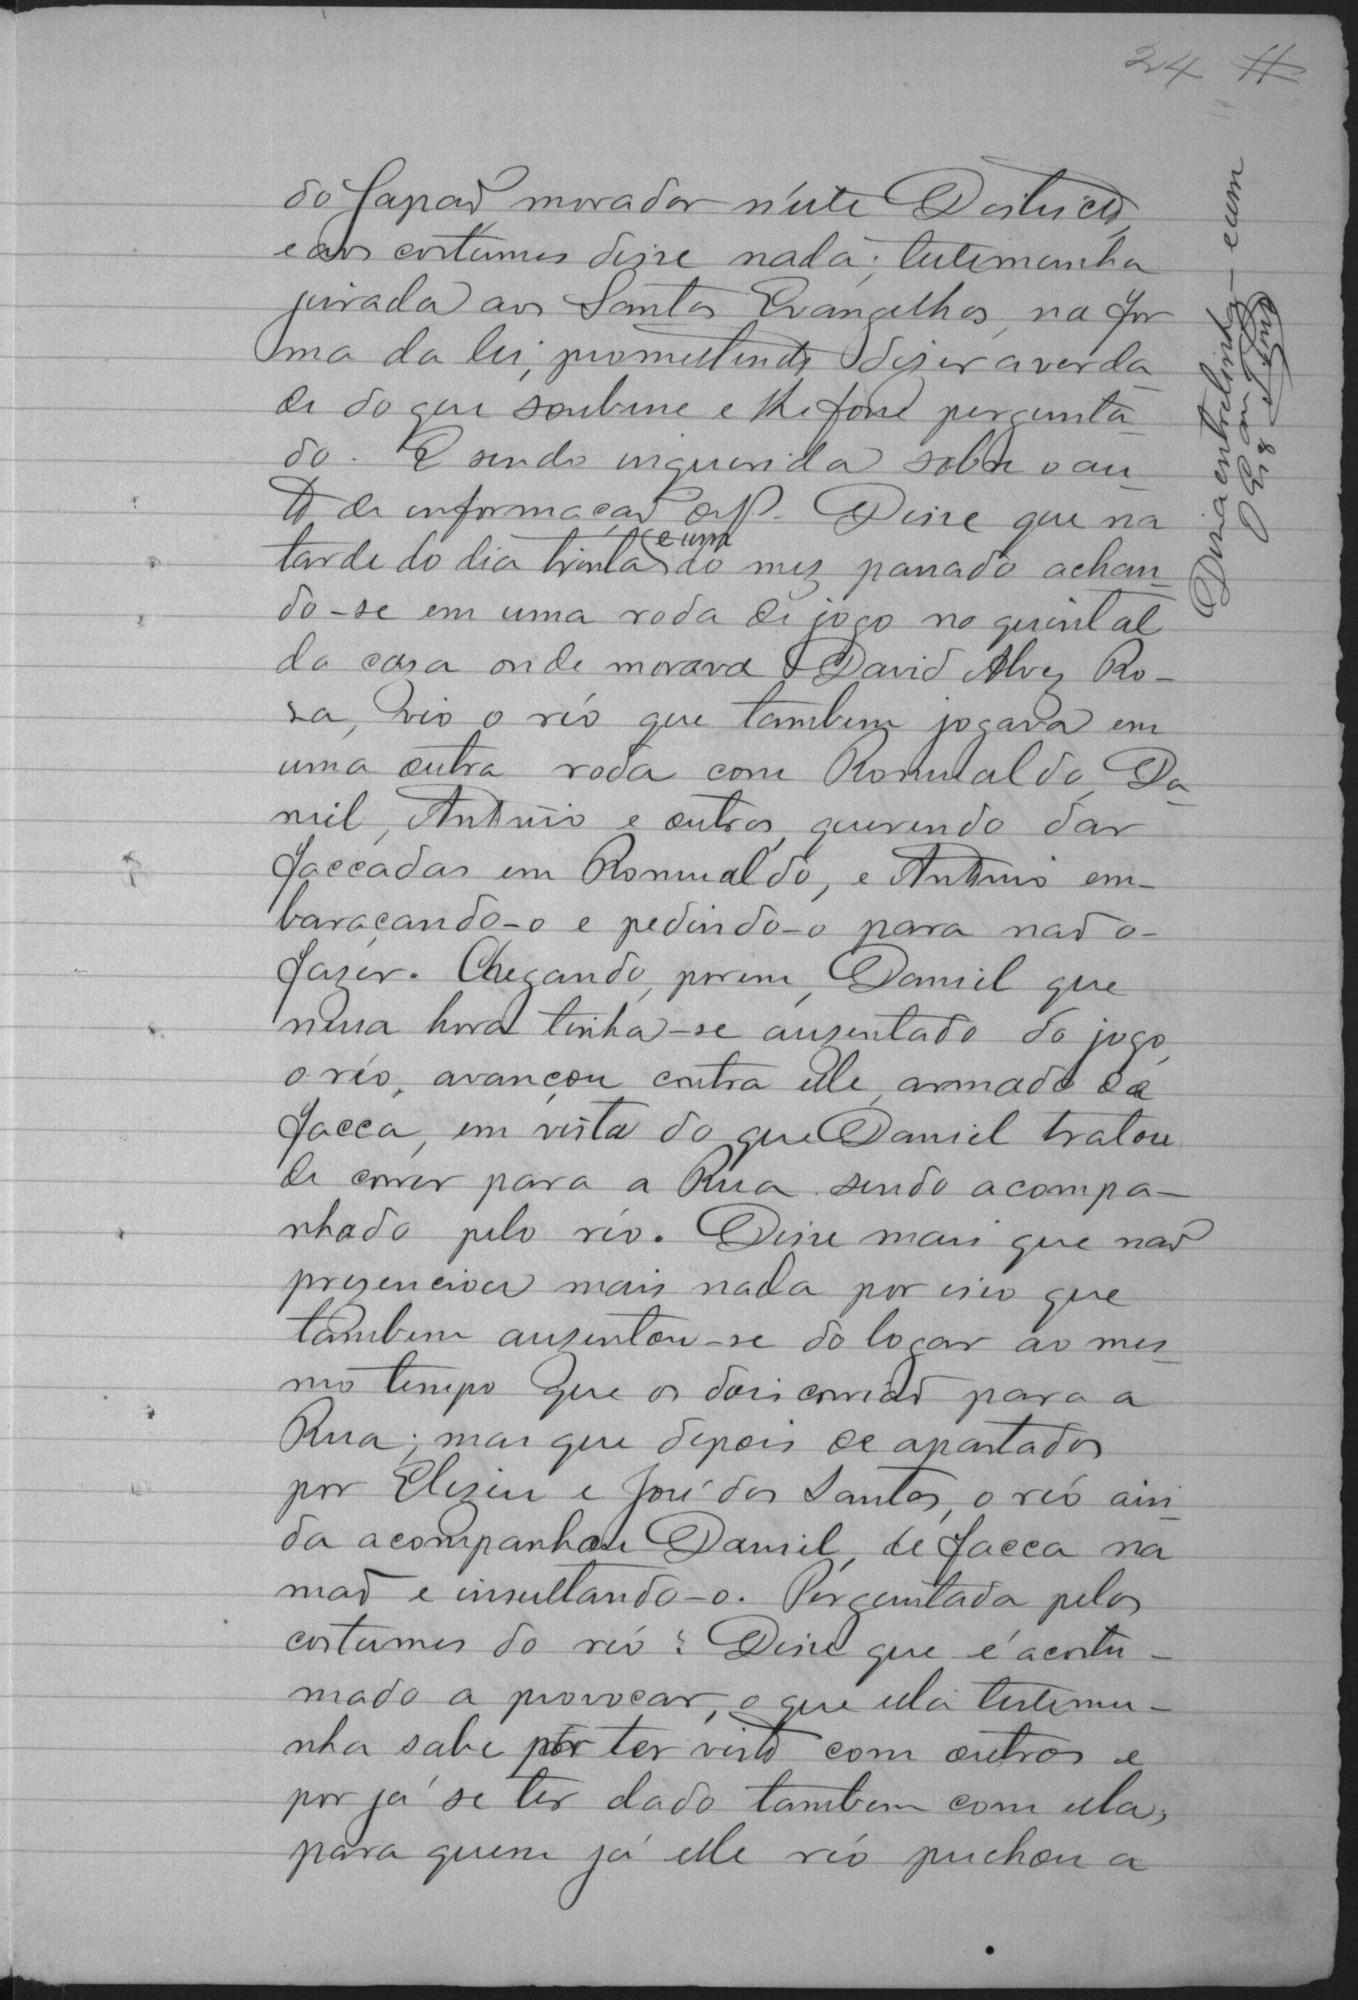 24
do Japaõ, morador n'éste Districto,
e aos costumes disse nada; testemunha
jurada aos Santos Evangelhos, na for
ma da lei, promettendo dizer a verda
de do que soubesse e lhe fosse pergunta
do. E sendo inquerida sobre o au
to de informaçaõ de f. Disse que na
tarde do dia trinta e um do mez passado achan
do-se em uma roda de jogo no quintal
da casa onde morava David Alvez Ro-
sa, vio o réo que tambem jogava em
uma outra roda com Romualdo, Da
niel, Antonio e outros, querendo dar
faccadas em Romualdo, e Antonio em-
baraçando-o e pedindo-o para naõ o-
fazer. Chegando, porem, Daniel que
nessa hora tinha-se auzentado do jogo,
o réo, avançou contra elle, armado de
facca, em vista do que Daniel tratou
de correr para a Rua sendo acompa-
nhado pelo réo. Disse mais que naõ
prezenciou mais nada por isso que
tambem auzentou-se do logar ao mes
mo tempo que os dois corriaõ para a
Rua; mas que depois de apartados
por Elizeu e José dos Santos, o réo ain
da acompanhou Daniel, de facca na
maõ e insultando-o. Perguntada pelos
costumes do réo? Disse que é acostu-
mado a provocar, o que ella testemu-
nha sabe por ter visto com outros e
por já se ter dado tambem com ella,
para quem já elle réo puchou a
Digo a entrelinha - e um